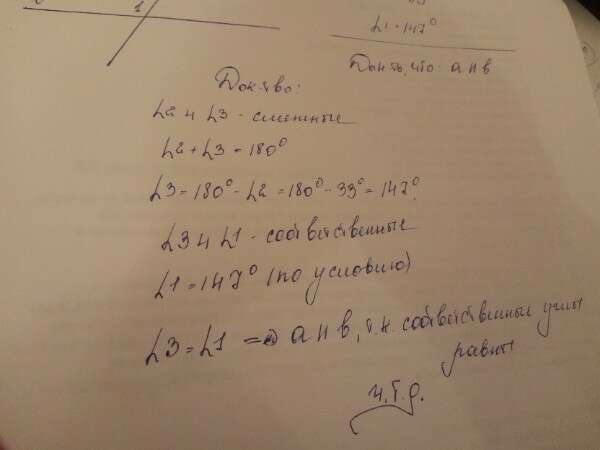 1
∠1 = 147°
Док-ть, что: a ıı b
Док-тво:
∠2 и ∠3 - смежные
∠2 + ∠3 = 180°
∠3 = 180° - ∠2 = 180° - 33° = 147°.
∠3 и ∠1 - соответственные
∠1 = 147° (по условию)
∠3 = ∠1 => a ıı b, т.к. соответственные углы
равны
ч.т.д.